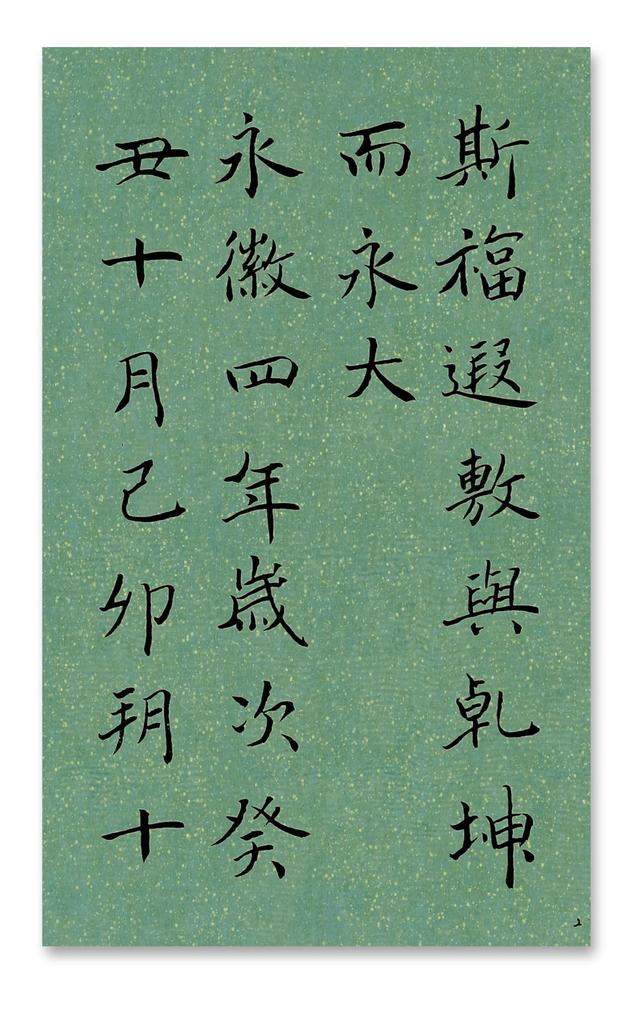 斯福遐敷與乹坤
而永大
永徽四年歲次癸
丑十月己卯朔十